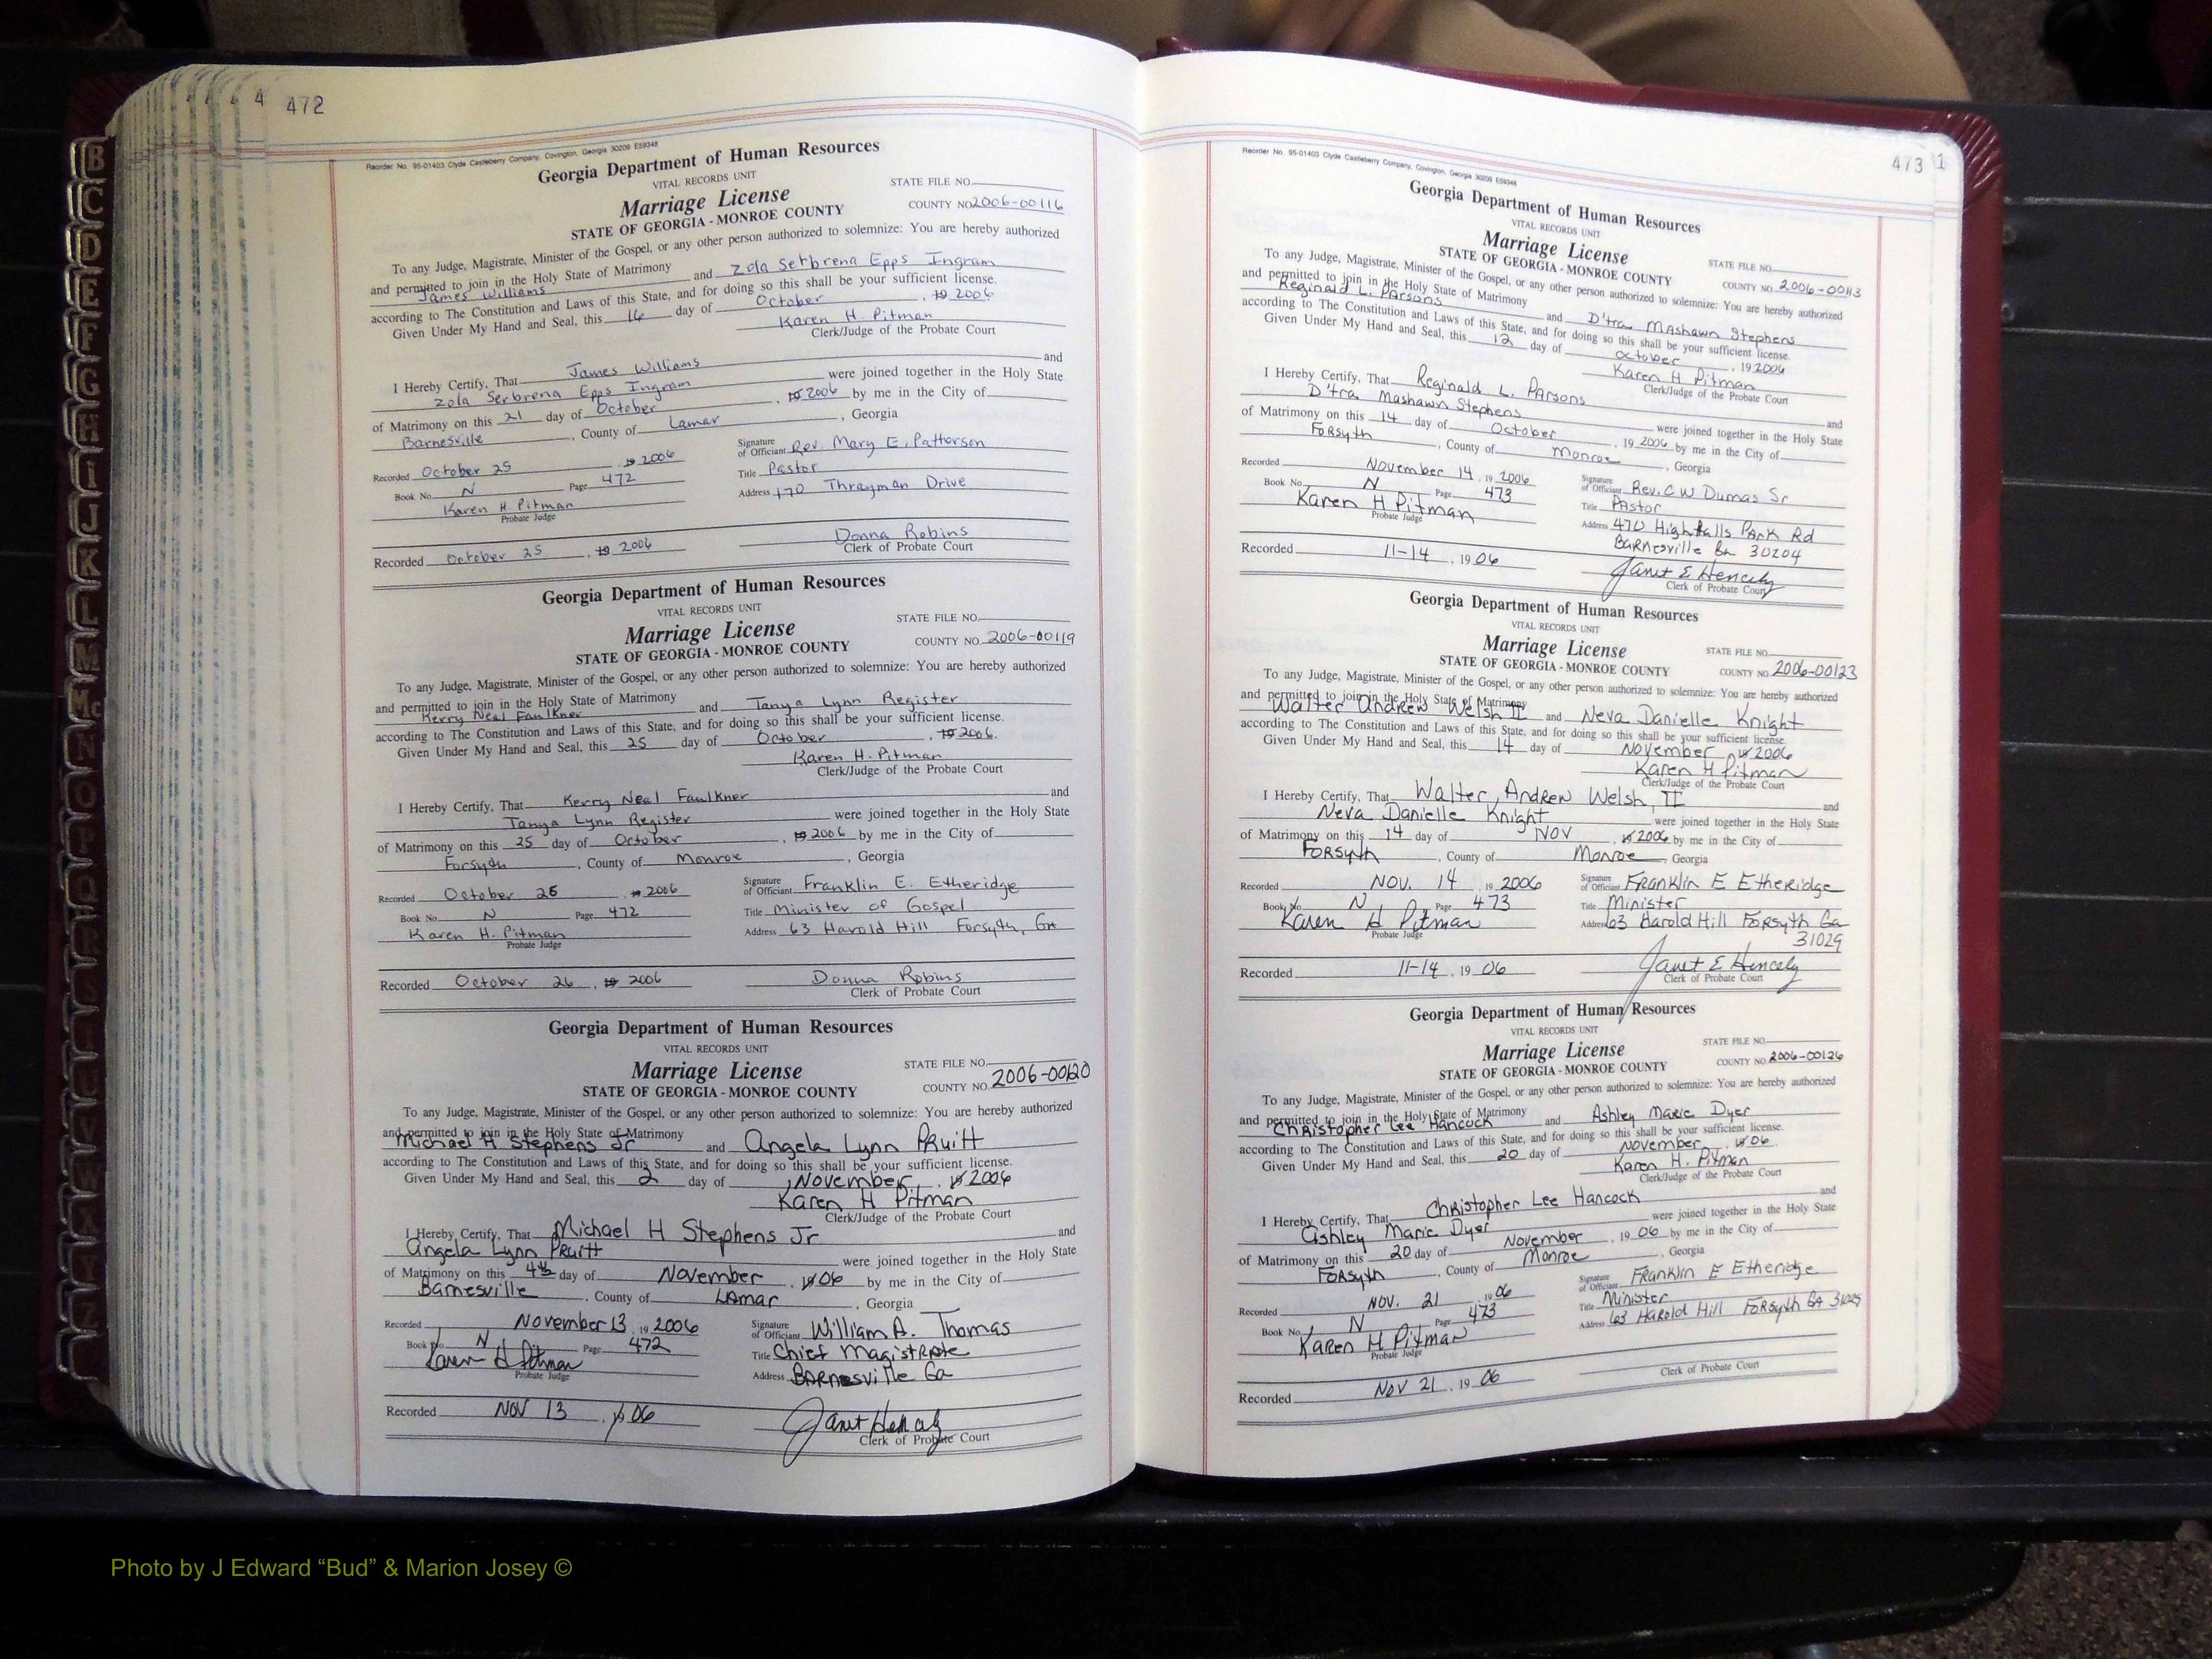 472
Reorder No. 95-01403 Clyde Castleberry Company, Covington, Georgia 30209 E59348
Georgia Department of Human Resources
VITAL RECORDS UNIT
Marriage License
STATE FILE NO.
STATE OF GEORGIA - MONROE COUNTY
COUNTY NO. 2006-00116
To any Judge, Magistrate, Minister of the Gospel, or any other person authorized to solemnize: You are hereby authorized
and permitted to join in the Holy State of Matrimony
James Williams and Zola Serbrena Epps Ingram
according to The Constitution and Laws of this State, and for doing so this shall be your sufficient license.
Given Under My Hand and Seal, this 16 day of October, 19 2006
Karen H. Pitman
Clerk/Judge of the Probate Court
I Hereby Certify, That James Williams and
Zola Serbrena Epps Ingram were joined together in the Holy State
of Matrimony on this 21 day of October, 19 2006 by me in the City of
Barnesville, County of Lamar, Georgia
Recorded October 25, 19 2006
Signature of Officiant Rev. Mary E. Patterson
Book No. N Page 472
Title Pastor
Karen H. Pitman
Address 170 Drive
Probate Judge
Donna Robins
Recorded October 25, 19 2006
Clerk of Probate Court
Georgia Department of Human Resources
VITAL RECORDS UNIT
Marriage License
STATE FILE NO.
STATE OF GEORGIA - MONROE COUNTY
COUNTY NO. 2006-00119
To any Judge, Magistrate, Minister of the Gospel, or any other person authorized to solemnize: You are hereby authorized
and permitted to join in the Holy State of Matrimony
Kerry Neal Faulkner and Tanya Lynn Register
according to The Constitution and Laws of this State, and for doing so this shall be your sufficient license.
Given Under My Hand and Seal, this 25 day of October, 19 2006.
Karen H. Pitman
Clerk/Judge of the Probate Court
I Hereby Certify, That Kerry Neal Faulkner and
Tanya Lynn Register were joined together in the Holy State
of Matrimony on this 25 day of October, 19 2006 by me in the City of
Forsyth, County of Monroe, Georgia
Recorded October 26, 19 2006
Signature of Officiant Franklin E. Etheridge
Book No. N Page 472
Title Minister of Gospel
Karen H. Pitman
Address 63 Harold Hill Forsyth, GA
Probate Judge
Donna Robins
Recorded October 26, 19 2006
Clerk of Probate Court
Georgia Department of Human Resources
VITAL RECORDS UNIT
Marriage License
STATE FILE NO.
STATE OF GEORGIA - MONROE COUNTY
COUNTY NO. 2006-00120
To any Judge, Magistrate, Minister of the Gospel, or any other person authorized to solemnize: You are hereby authorized
and permitted to join in the Holy State of Matrimony
Michael H Stephens Jr and Angela Lynn Pruitt
according to The Constitution and Laws of this State, and for doing so this shall be your sufficient license.
Given Under My Hand and Seal, this 2 day of November, 19 2006
Karen H Pitman
Clerk/Judge of the Probate Court
I Hereby Certify, That Michael H Stephens Jr and
Angela Lynn Pruitt were joined together in the Holy State
of Matrimony on this 4th day of November, 19 06 by me in the City of
Barnesville, County of Lamar, Georgia
Recorded November 13, 19 2006
Signature of Officiant William A. Thomas
Book No. N Page 472
Title Chief Magistrate
Karen H Pitman
Address Barnesville Ga
Probate Judge
Recorded Nov 13, 19 06
Janet Hencely
Clerk of Probate Court
473 1
Reorder No. 95-01403 Clyde Castleberry Company, Covington, Georgia 30209 E59348
Georgia Department of Human Resources
VITAL RECORDS UNIT
Marriage License
STATE FILE NO.
STATE OF GEORGIA - MONROE COUNTY
COUNTY NO. 2006-00113
To any Judge, Magistrate, Minister of the Gospel, or any other person authorized to solemnize: You are hereby authorized
and permitted to join in the Holy State of Matrimony
Reginald L. Parsons and D'tra Mashawn Stephens
according to The Constitution and Laws of this State, and for doing so this shall be your sufficient license.
Given Under My Hand and Seal, this 12 day of October, 19 2006
Karen H Pitman
Clerk/Judge of the Probate Court
I Hereby Certify, That Reginald L. Parsons and
D'tra Mashawn Stephens were joined together in the Holy State
of Matrimony on this 14 day of October, 19 2006 by me in the City of
Forsyth, County of Monroe, Georgia
Recorded November 14, 19 2006
Signature of Officiant Rev. C W Dumas Sr
Book No. N Page 473
Title Pastor
Karen H Pitman
Address 470 Highfalls Park Rd
Probate Judge
Barnesville Ga 30204
Recorded 11-14, 19 06
Janet E Hencely
Clerk of Probate Court
Georgia Department of Human Resources
VITAL RECORDS UNIT
Marriage License
STATE FILE NO.
STATE OF GEORGIA - MONROE COUNTY
COUNTY NO. 2006-00123
To any Judge, Magistrate, Minister of the Gospel, or any other person authorized to solemnize: You are hereby authorized
and permitted to join in the Holy State of Matrimony
Walter Andrew Welsh II and Neva Danielle Knight
according to The Constitution and Laws of this State, and for doing so this shall be your sufficient license.
Given Under My Hand and Seal, this 14 day of November, 19 2006
Karen H Pitman
Clerk/Judge of the Probate Court
I Hereby Certify, That Walter Andrew Welsh, II and
Neva Danielle Knight were joined together in the Holy State
of Matrimony on this 14 day of Nov, 19 2006 by me in the City of
Forsyth, County of Monroe, Georgia
Recorded Nov. 14, 19 2006
Signature of Officiant Franklin E Etheridge
Book No. N Page 473
Title Minister
Karen H Pitman
Address 63 Harold Hill Forsyth Ga
Probate Judge
31029
Recorded 11-14, 19 06
Janet E Hencely
Clerk of Probate Court
Georgia Department of Human Resources
VITAL RECORDS UNIT
Marriage License
STATE FILE NO.
STATE OF GEORGIA - MONROE COUNTY
COUNTY NO. 2006-00126
To any Judge, Magistrate, Minister of the Gospel, or any other person authorized to solemnize: You are hereby authorized
and permitted to join in the Holy State of Matrimony
Christopher Lee Hancock and Ashley Marie Dyer
according to The Constitution and Laws of this State, and for doing so this shall be your sufficient license.
Given Under My Hand and Seal, this 20 day of November, 19 06.
Karen H. Pitman
Clerk/Judge of the Probate Court
I Hereby Certify, That Christopher Lee Hancock and
Ashley Marie Dyer were joined together in the Holy State
of Matrimony on this 20 day of November, 19 06 by me in the City of
Forsyth, County of Monroe, Georgia
Recorded Nov. 21, 19 06
Signature of Officiant Franklin E Etheridge
Book No. N Page 473
Title Minister
Karen H Pitman
Address 63 Harold Hill Forsyth GA 31029
Probate Judge
Recorded Nov 21, 19 06
Clerk of Probate Court
B
C
D
E
F
G
H
I
J
K
L
M
Mc
N
O
Photo by J Edward “Bud” & Marion Josey ©